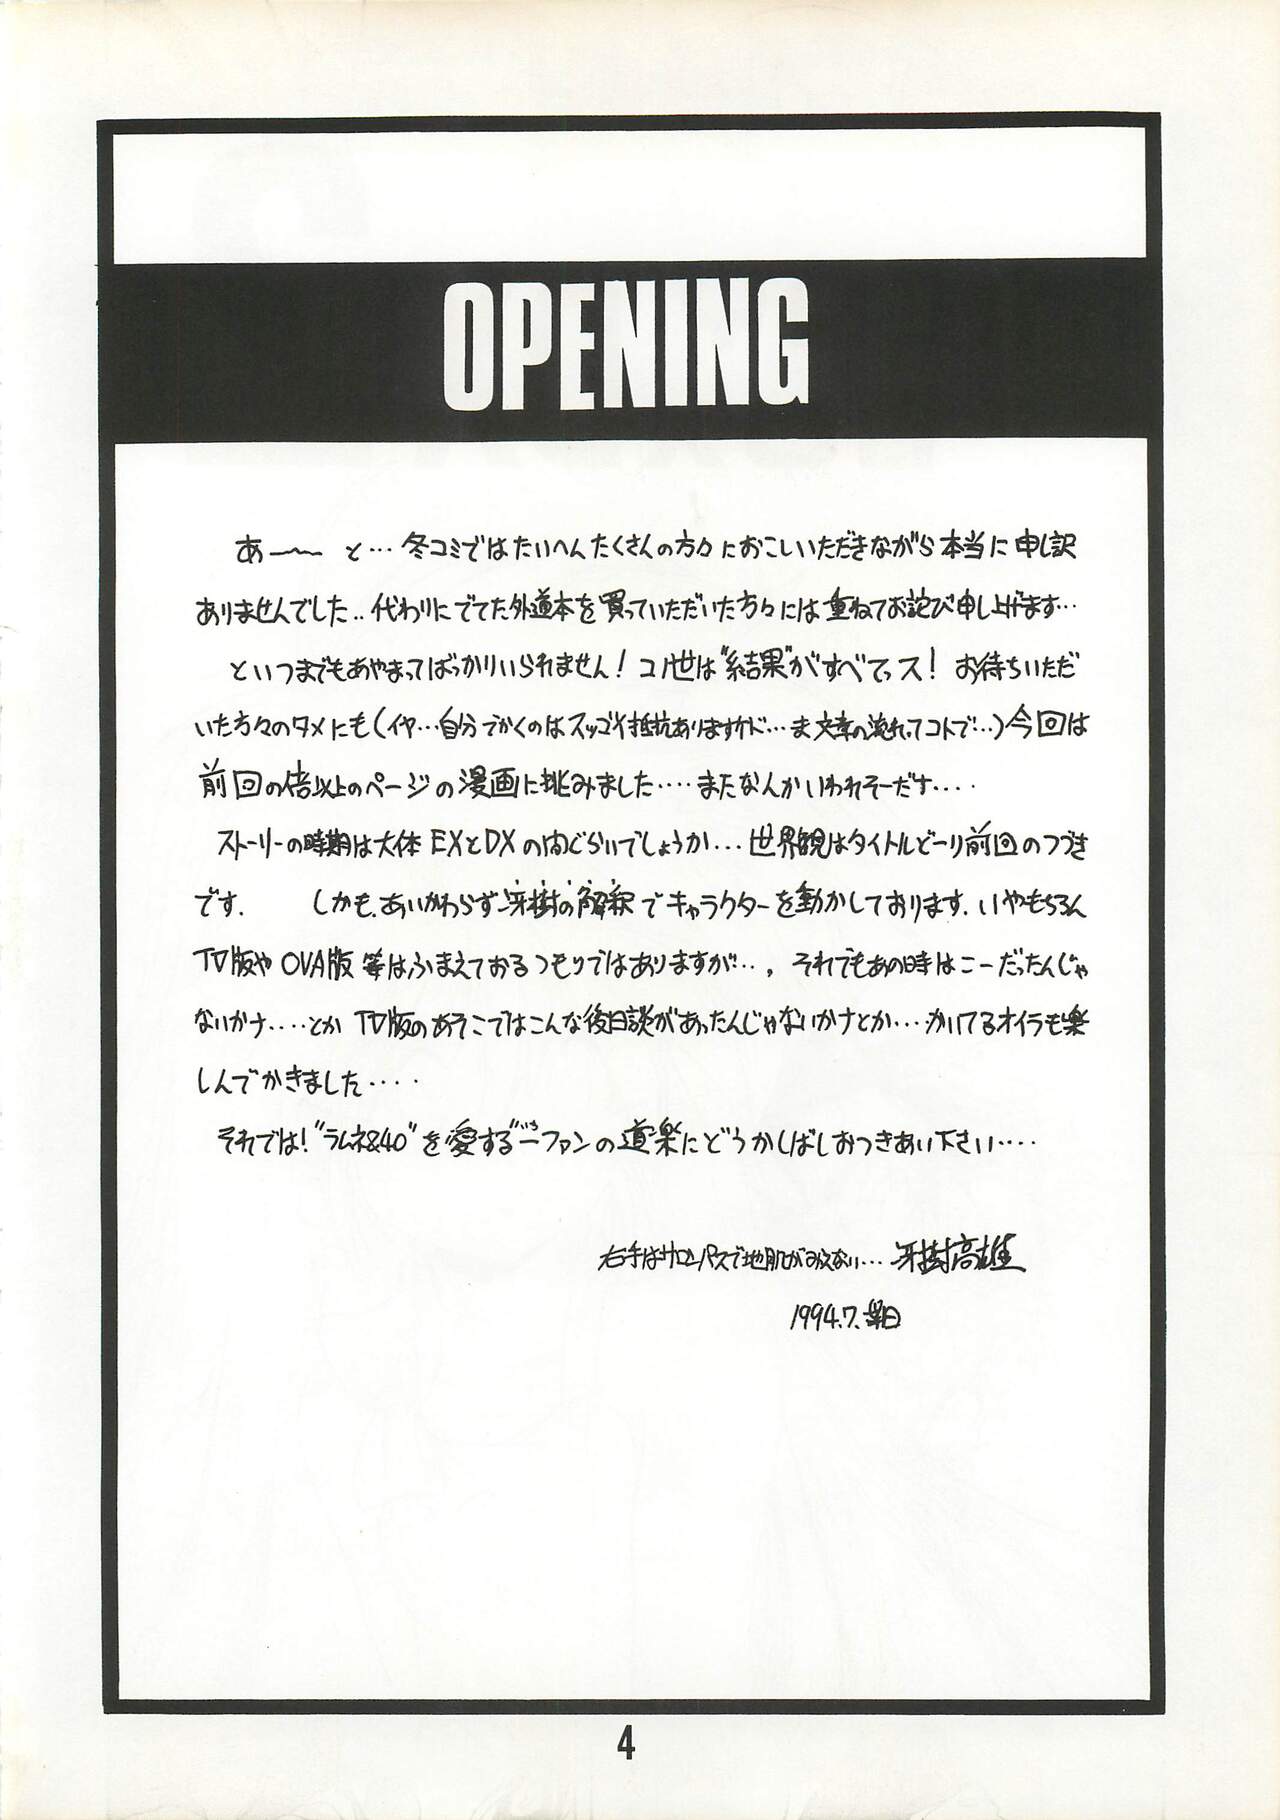 OPENING
あー〜〜 と…冬コミではたいへんたくさんの方々におこしいただきながら本当に申し訳
ありませんでした..代わりにでてた外道本を買っていただいた方々には重ねてお詫び申し上げます…
といつまでもあやまってばっかりいられません!コノ世は"結果"がすべてっス!お待ちいただ
いた方々のタメにも(イヤ…自分でかくのはスッゴイ抵抗ありますケド…ま文章の流れってコトで…)今回は
前回の倍以上のページの漫画に挑みました‥‥またなんかいわれそーだす‥‥
ストーリーの時期は大体EXとDXの間ぐらいでしょうか…世界観はタイトルどーり前回のつづき
です. しかも、あいかわらず牙樹の解釈でキャラクターを動かしております.いやもちろん
TV版やOVA版等はふまえておるつもりではありますが…,それでもあの時はこーだったんじゃ
ないかナ‥‥とかTV版のあそこではこんな後日談があったんじゃないかナとか‥‥かいてるオイラも楽
しんでかきました‥‥
それでは!"ラムネ&40"を"愛する"一ファンの道楽にどうかしばしおつきあい下さい‥‥
右手はサロンパスで地肌がみえない…牙樹高雄
1994.7.某日
4